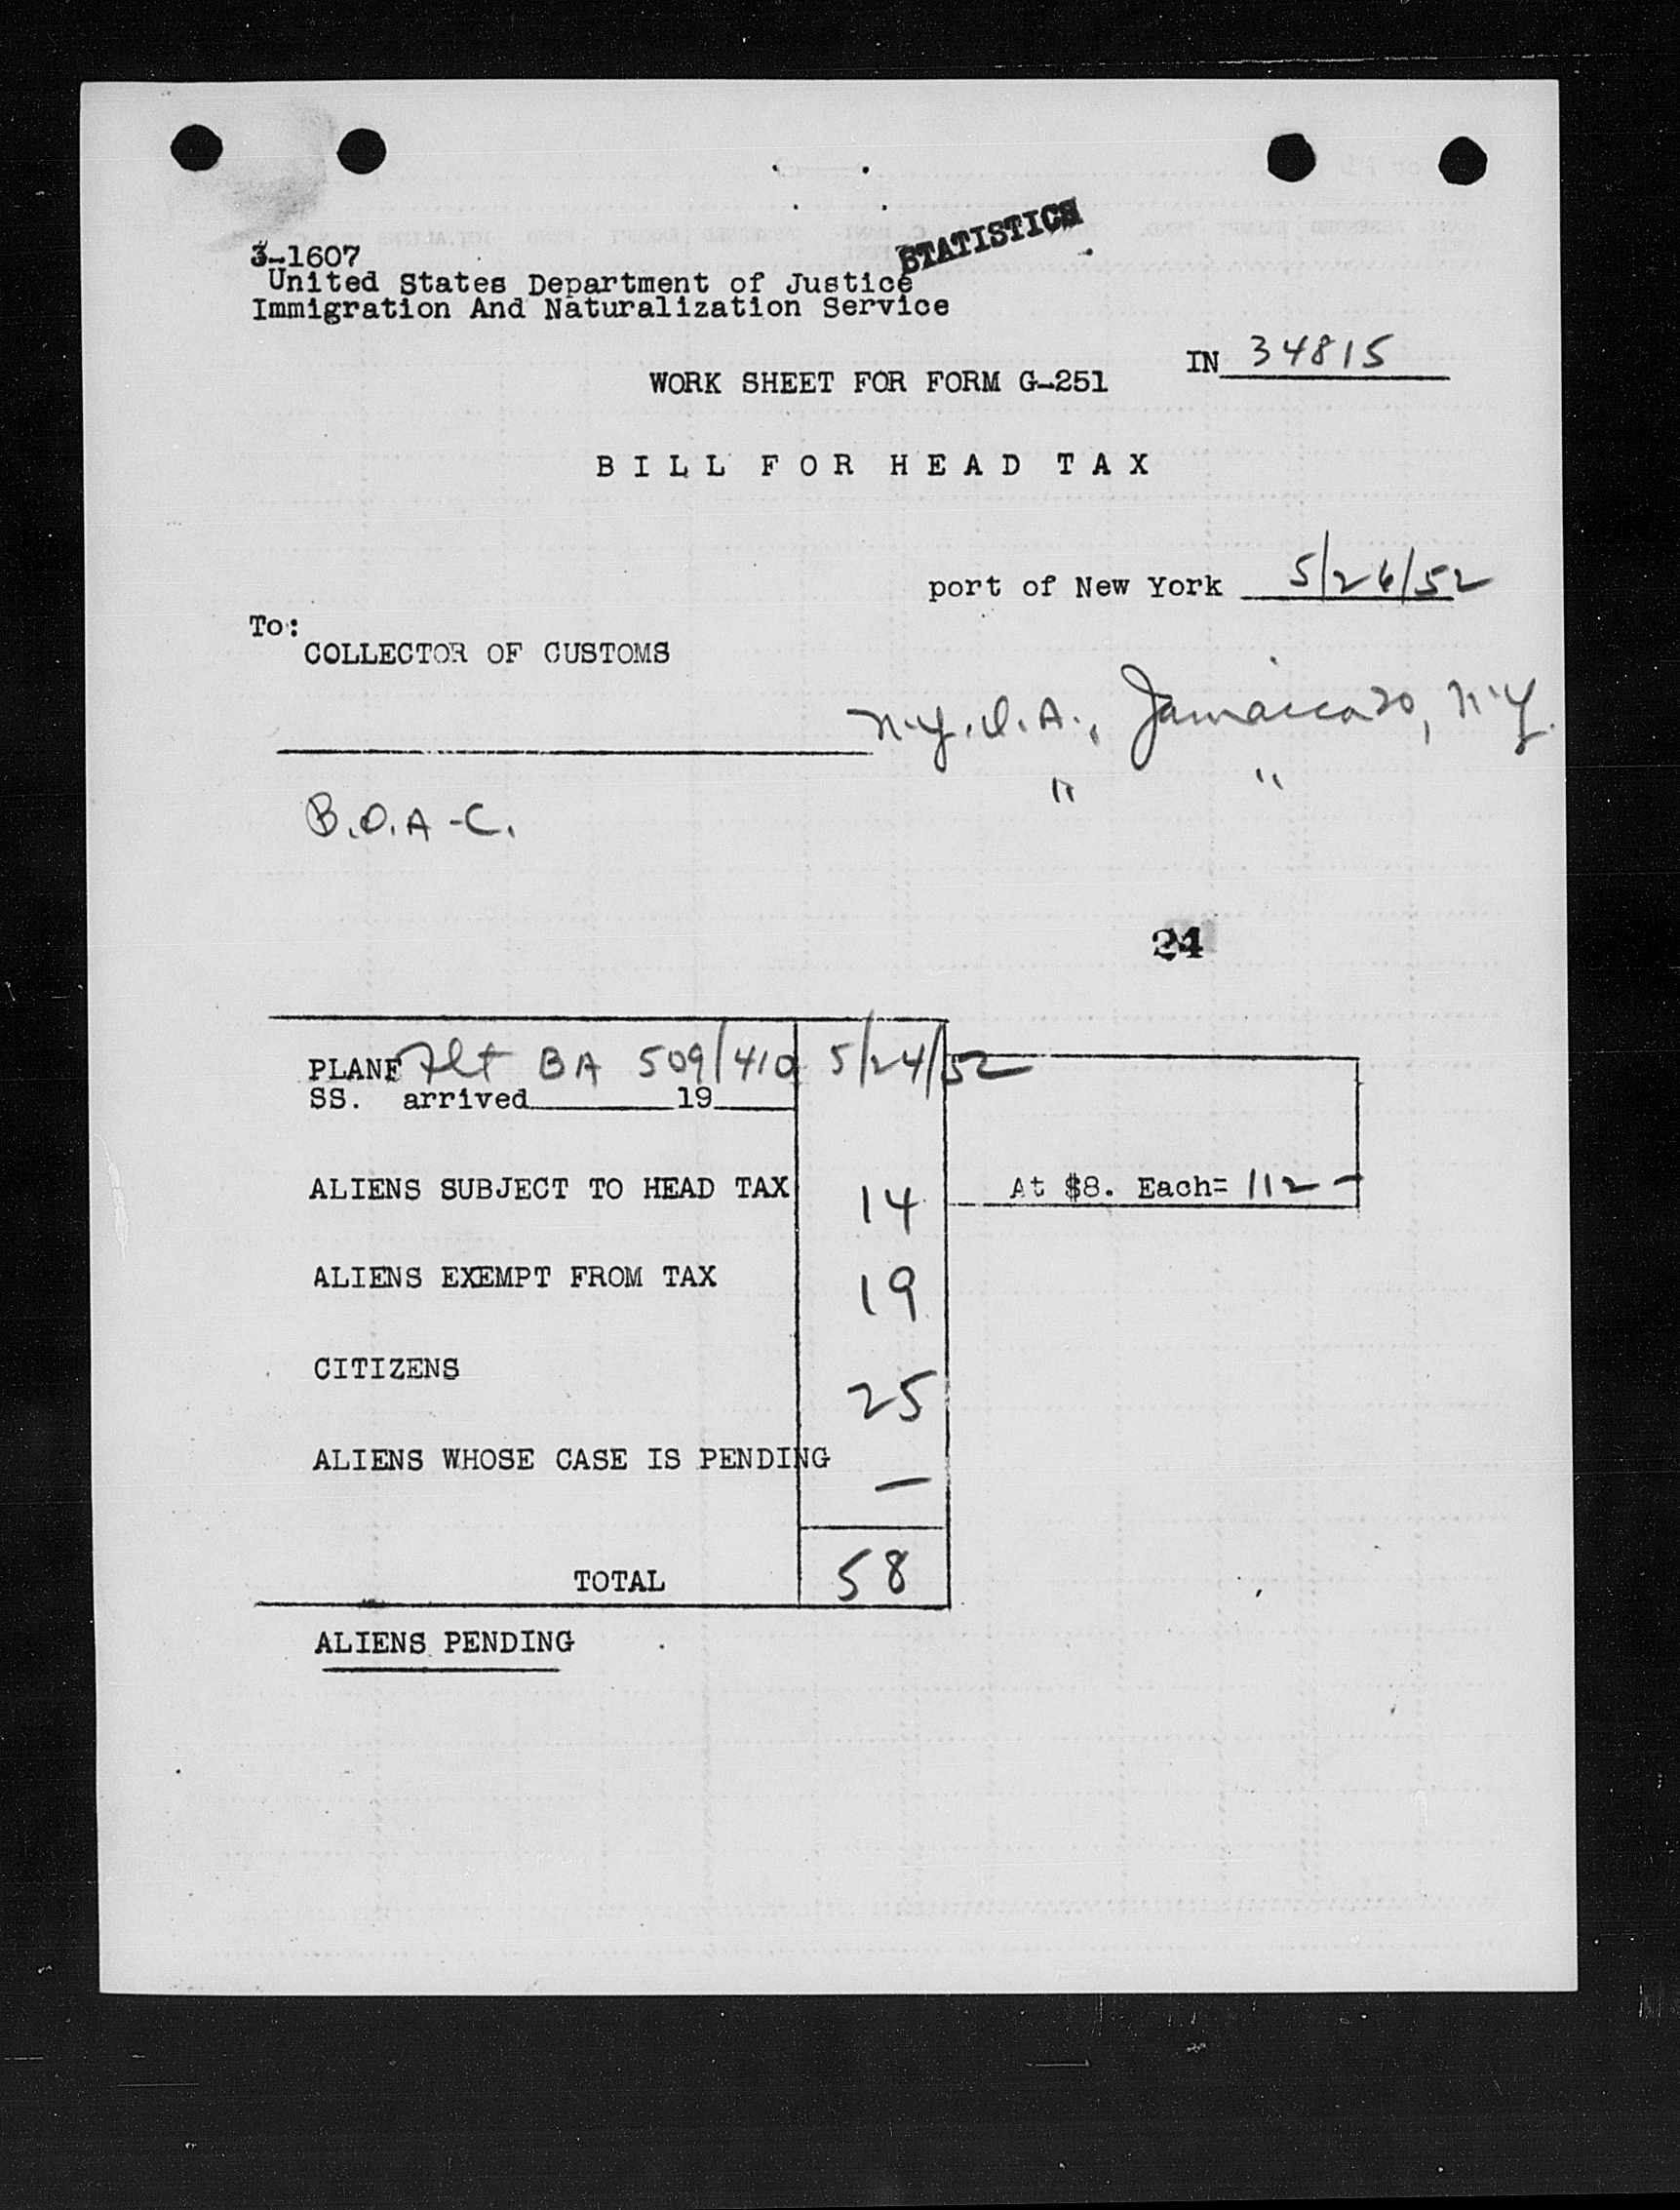 STATISTICS
3-1607
United States Department of Justice
Immigration And Naturalization Service
IN 34815
WORK SHEET FOR FORM G-251
BILL FOR HEAD TAX
port of New York 5/26/52
To:
COLLECTOR OF CUSTOMS
N.Y.I.A., Jamaica 20, N.Y.
" "
B.O.A.C.
24
PLANE Flt BA 509/410 5/24/52
SS. arrived 19
ALIENS SUBJECT TO HEAD TAX 14 At $8. Each= 112 -
ALIENS EXEMPT FROM TAX 19
CITIZENS 25
ALIENS WHOSE CASE IS PENDING —
TOTAL 58
ALIENS PENDING